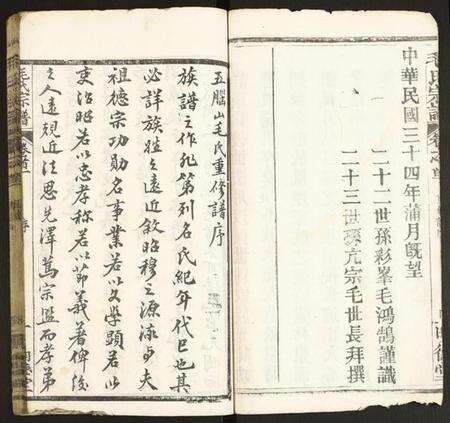 毛氏宗譜 卷首
中華民國三十四年蒲月既望
二十二世孫彩峯毛鴻鵠謹識
二十三世孫亢宗毛世長拜撰
五腦山毛氏重修譜序
族譜之作死第列名氏紀年代已也其
必詳族姓之遠近敘昭穆之源流與夫
祖德宗功勛名事業若以文學顯若以
吏治昭若以忠孝称若以節義著俾後
之人遠規近法思先澤篤宗盟而孝弟
毛氏宗譜 卷首